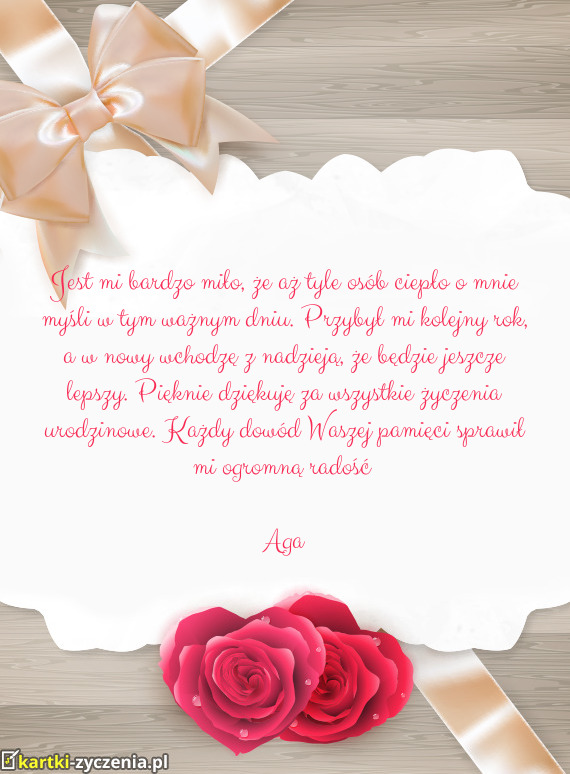 Jest mi bardzo miło, że aż tyle osób ciepło o mnie
myśli w tym ważnym dniu. Przybył mi kolejny rok,
a w nowy wchodzę z nadzieją, że będzie jeszcze
lepszy. Pięknie dziękuję za wszystkie życzenia
urodzinowe. Każdy dowód Waszej pamięci sprawił
mi ogromną radość
Aga
kartki-zyczenia.pl